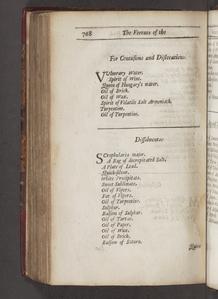 708 The Vertues of the
For Contusions and Dislocations.
VUlnerary Water.
Spirit of Wine.
Queen of Hungary's water.
Oil of Brick.
Oil of Wax.
Spirit of Volatile Salt Armoniack.
Turpentine.
Oil of Turpentine.
Dissolvents.
SCrophularia major.
A Bag of decrepitated Salt.
A Plate of Lead.
Quick-silver.
White Precipitate.
Sweet Sublimate.
Oil of Vipers.
Fat of Vipers.
Oil of Turpentine.
Sulphur.
Balsom of Sulphur.
Oil of Tartar.
Oil of Paper.
Oil of Wax.
Oil of Brick.
Balsom of Saturn.